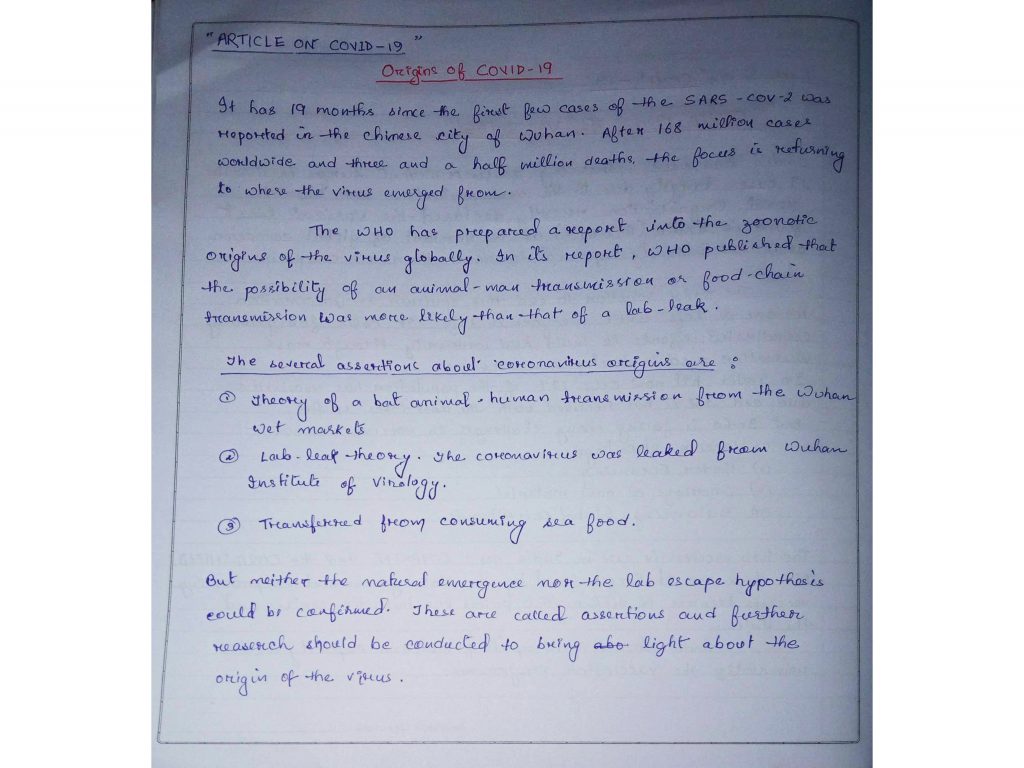 "ARTICLE ON COVID-19"
Origins of COVID-19
It has 19 months since the first few cases of the SARS-COV-2 was
reported in the chinese city of Wuhan. After 168 million cases
worldwide and three and a half million deaths, the focus is returning
to where the virus emerged from.
The WHO has prepared a report into the zoonotic
origins of the virus globally. In its report, WHO published that
the possibility of an animal-man transmission or food-chain
transmission was more likely than that of a lab-leak.
The several assertions about coronavirus origins are :
① Theory of a bat animal-human transmission from the Wuhan
wet markets
② Lab-leap theory. The coronavirus was leaked from Wuhan
Institute of Virology.
③ Transferred from consuming sea food.
But neither the natural emergence nor the lab escape hypothesis
could be confirmed. These are called assertions and further
reaserch should be conducted to bring abo light about the
origin of the virus.